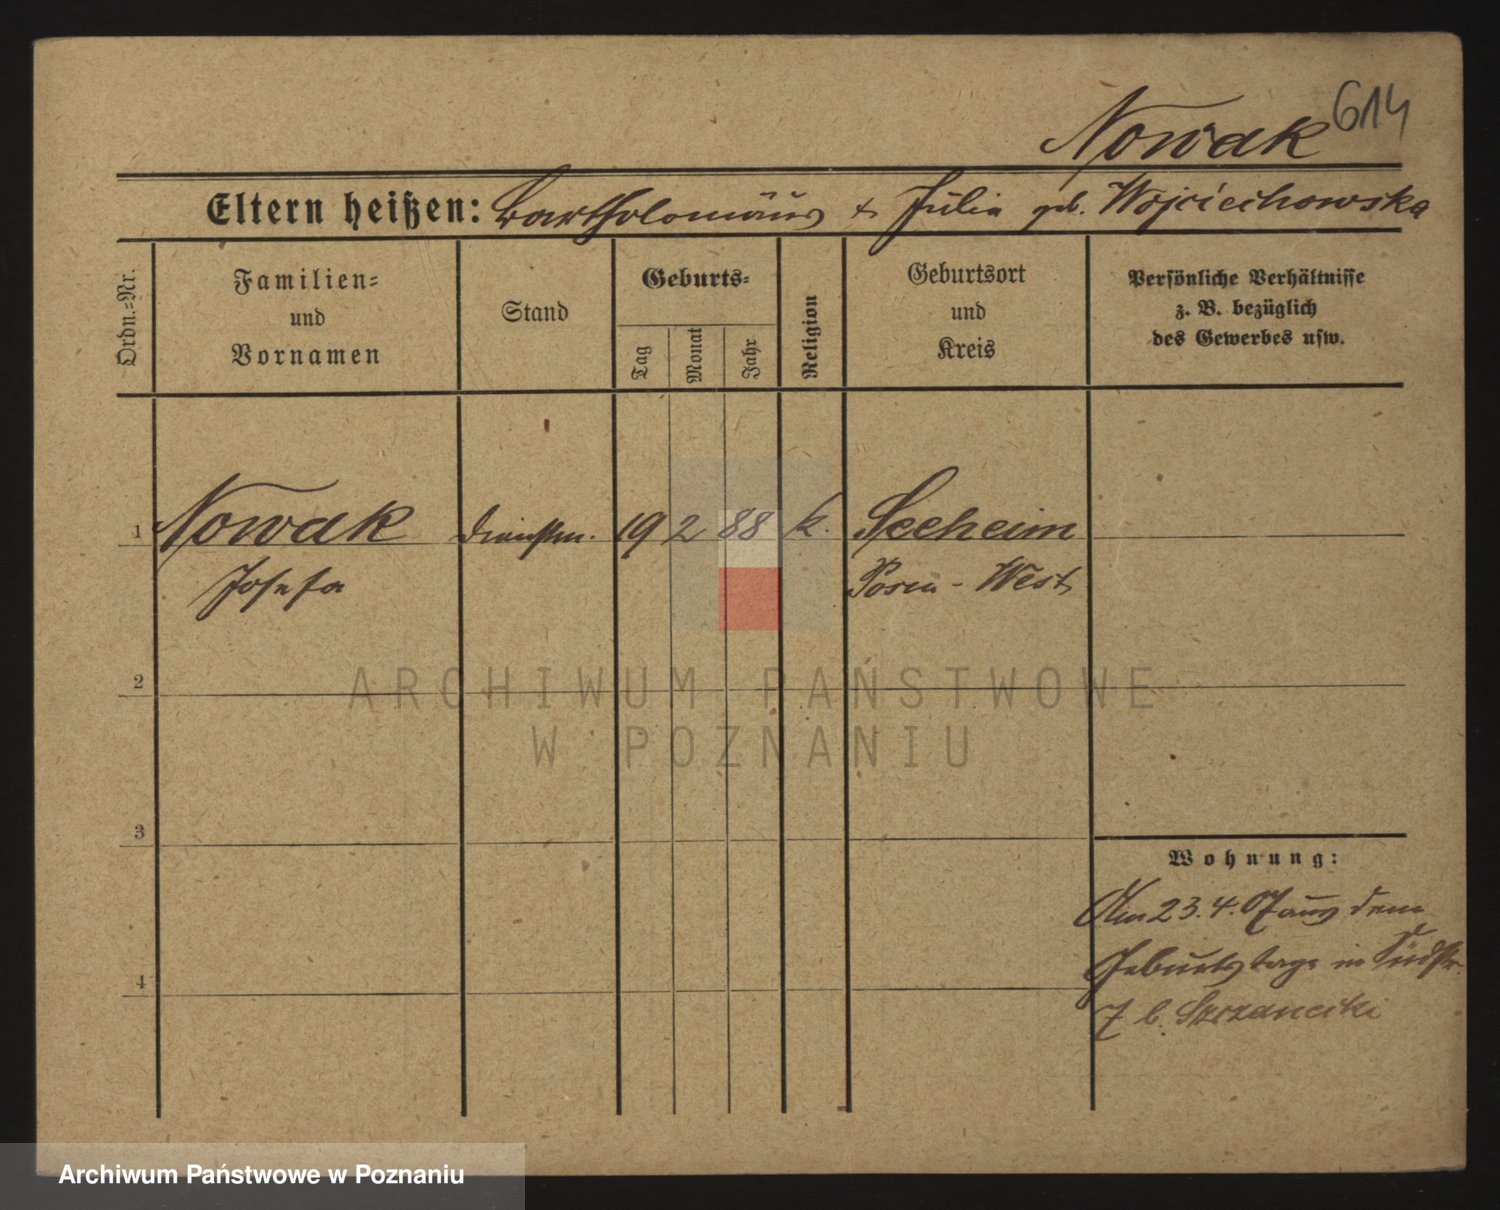 614
Nowak
Eltern heißen: Bartholomäus & Julia geb. Wojciechowska
Ordn.-Nr.
Familien-
und
Vornamen
Stand
Geburts-
Tag
Monat
Jahr
Religion
Geburtsort
und
Kreis
Persönliche Verhältnisse
z. B. bezüglich
des Gewerbes usw.
1 Nowak Dienstm. 19 2 88 k. Seeheim
Josefa Posen - West
ARCHIWUM PAŃSTWOWE
W POZNANIU
2
3
Wohnung:
Am 23. 4. 07 aus dem
Geburtstage in Südstr.
4
7 b.
Archiwum Państwowe w Poznaniu